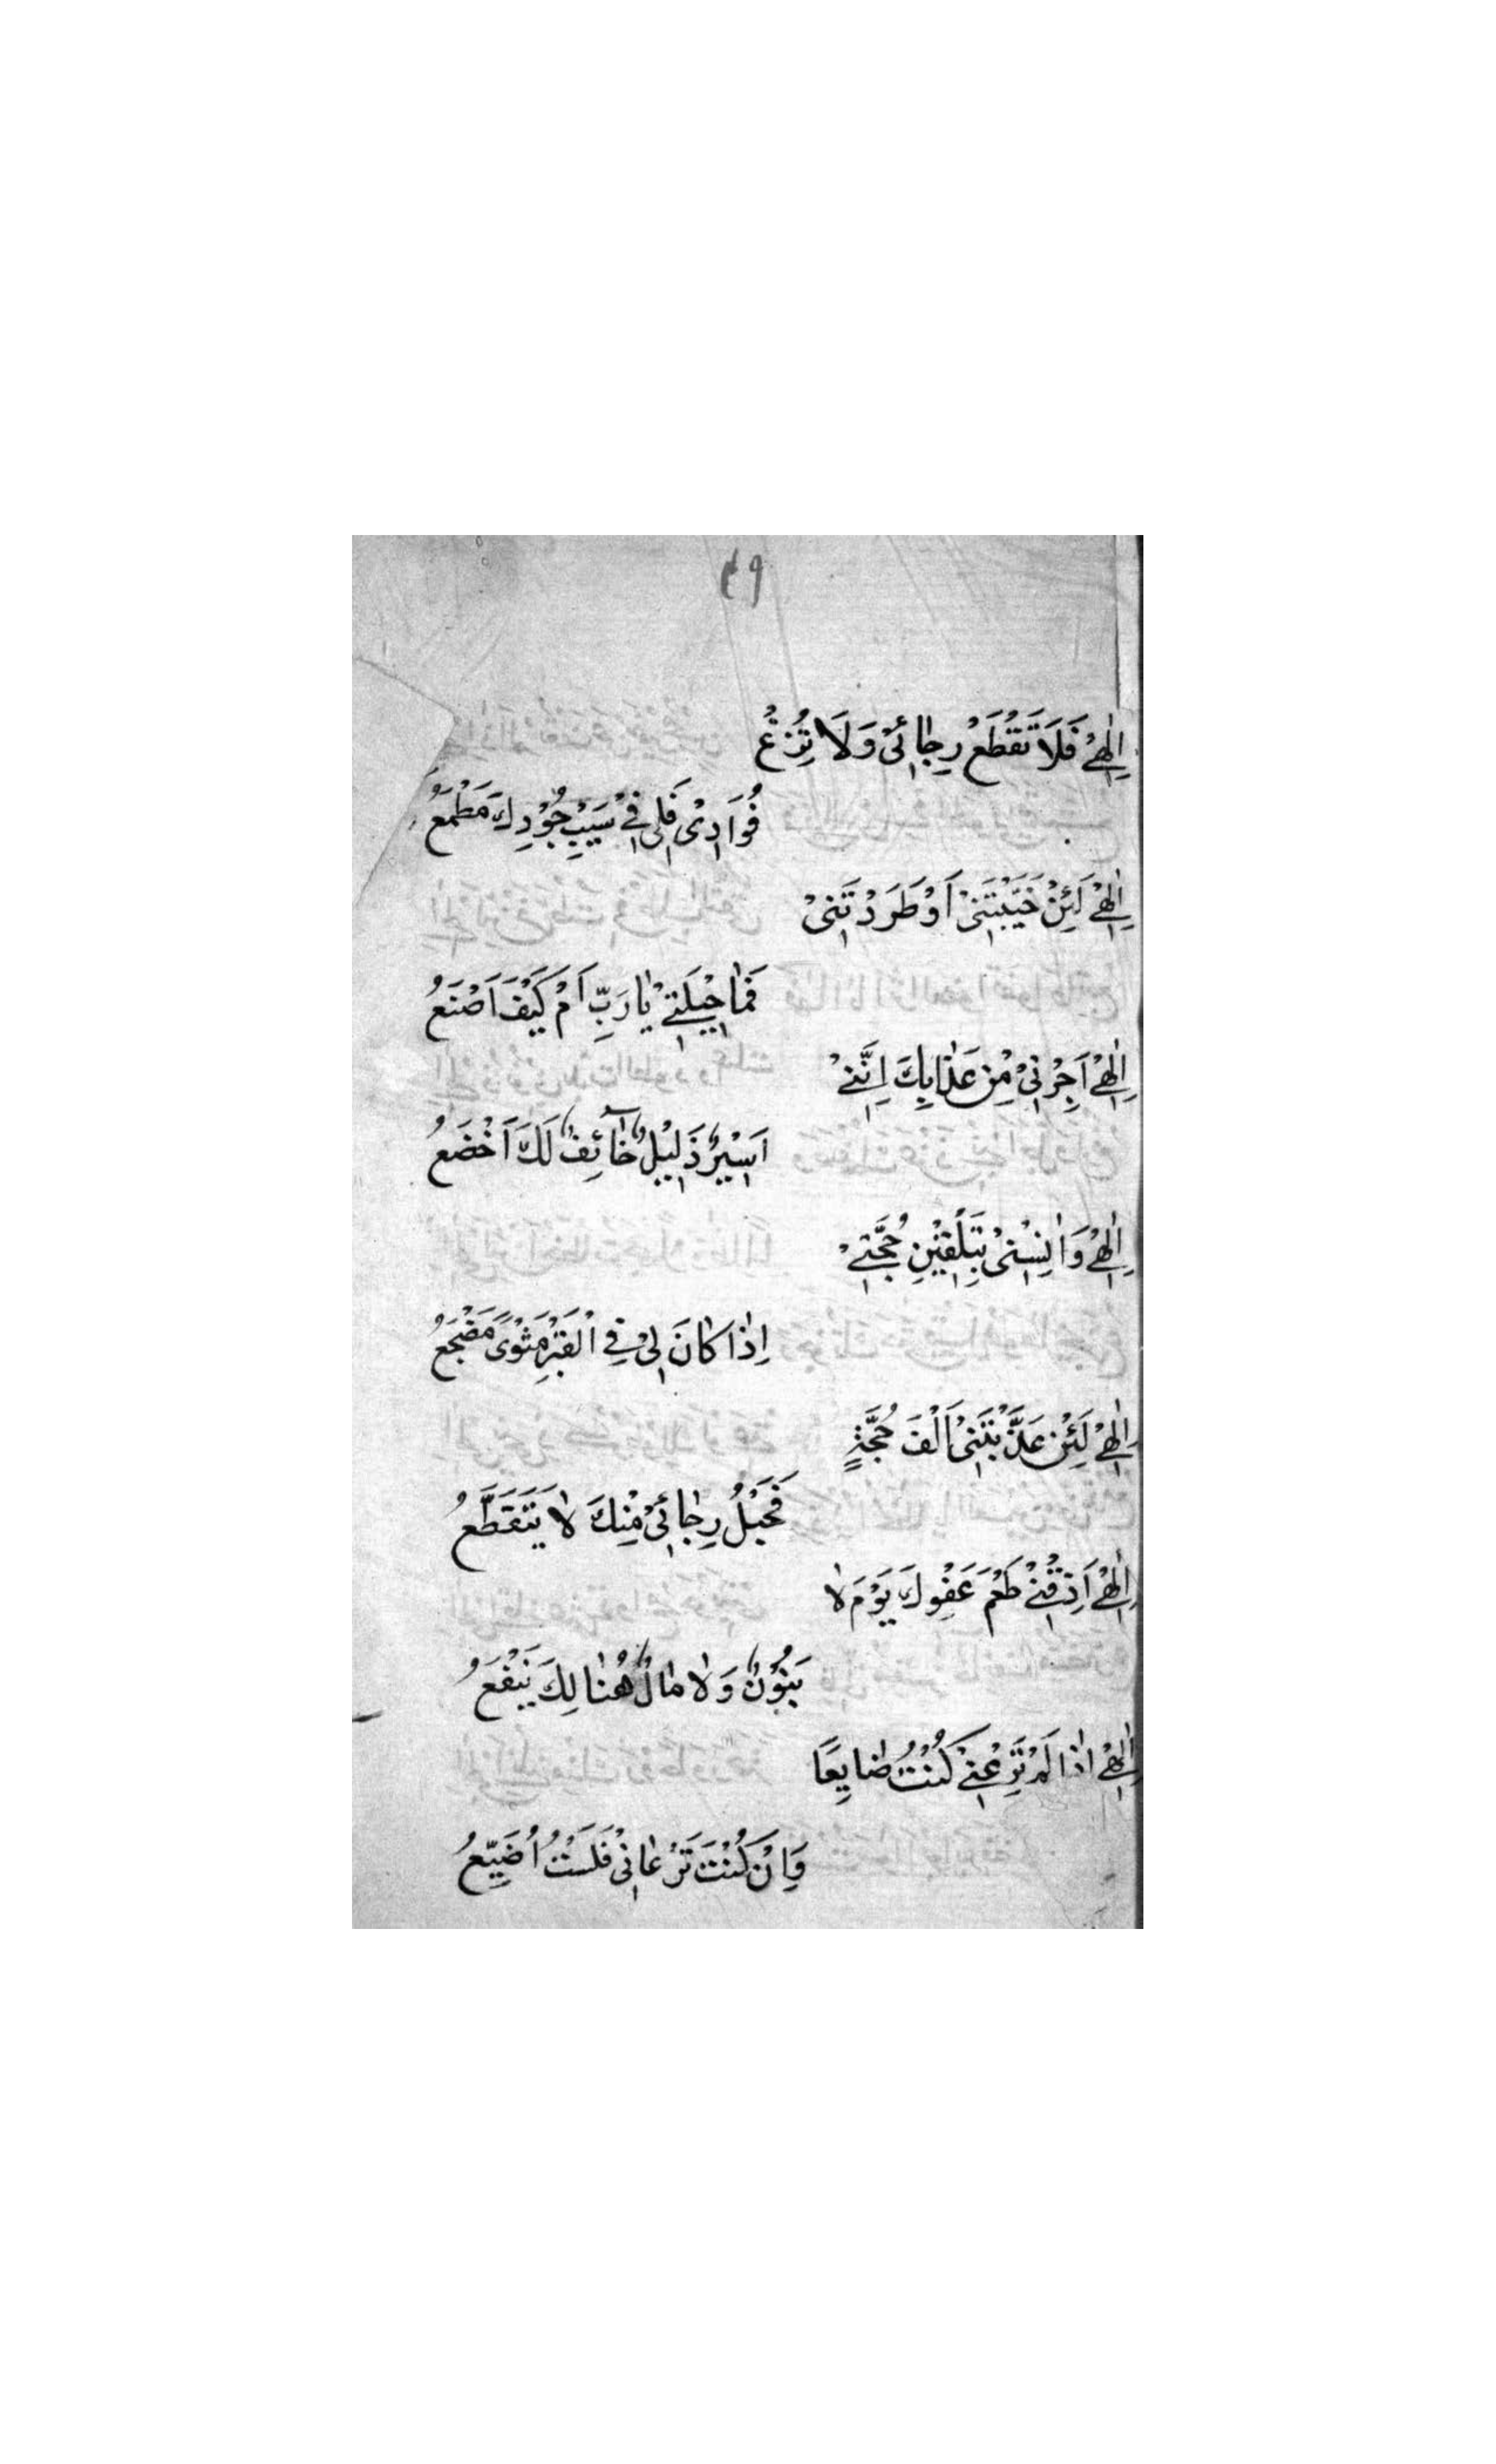 ٤٩
اِلٰهِیْ فَلَا تَقْطَعْ رِجٰائِیْ وَلَا تُزِغْ
فُوَادِیْ فَلِیْ فِیْ سَيْبِ جُوْدِكَ مَطْمَعُ
اِلٰهِیْ لَئِنْ خَيَّبْتَنِیْ اَوْ طَرَدْتَنِیْ
فَمٰا حِيْلَتِیْ يٰا رَبِّ اَمْ كَيْفَ اَصْنَعُ
اِلٰهِیْ اَجِرْنِیْ مِنْ عَذٰابِكَ اِنَّنِیْ
اَسِيْرٌ ذَلِيْلٌ خٰائِفٌ لَكَ اَخْضَعُ
اِلٰهِیْ وَاٰنِسْنِیْ بِتَلْقِيْنِ حُجَّتِیْ
اِذٰا كٰانَ لِیْ فِی الْقَبْرِ مَثْوًی مَضْجَعُ
اِلٰهِیْ لَئِنْ عَذَّبْتَنِیْ اَلْفَ حُجَّةٍ
فَحَبْلُ رِجٰائِیْ مِنْكَ لٰا يَتَقَطَّعُ
اِلٰهِیْ اَذِقْنِیْ طَعْمَ عَفْوِكَ يَوْمَ لٰا
بَنُوْنٌ وَلٰا مٰالٌ هُنٰالِكَ يَنْفَعُ
اِلٰهِیْ اِذٰا لَمْ تَرْعَنِیْ كُنْتُ ضٰايِعًا
وَاِنْ كُنْتَ تَرْعٰانِیْ فَلَسْتُ اُضَيَّعُ